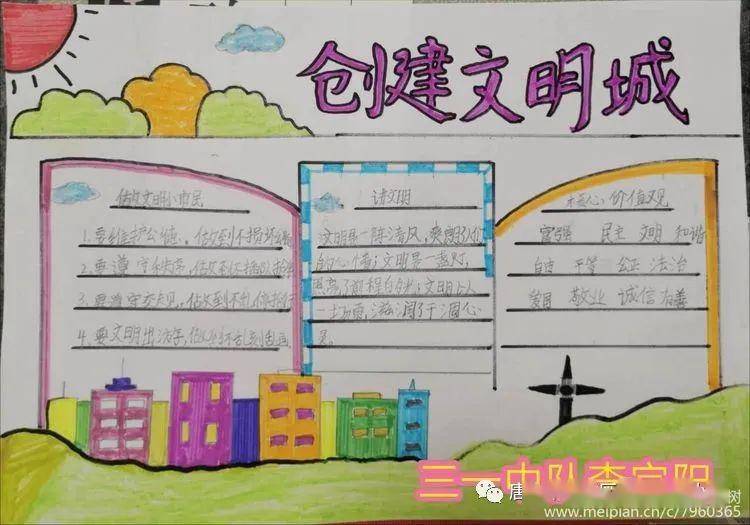 创建文明城
做文明小市民
1.要维护公德,做到不损坏公物
2.要遵守秩序,做到不插队抢
3.要遵守交规,做到不乱停
4.要文明出游,做到不乱刻乱画
讲文明
文明是一阵清风,爽朗了人们
的心情;文明是一盏灯,
照亮了前程
一场雨,滋润了干涸心
灵。
核心价值观
富强 民主 文明 和谐
自由 平等 公正 法治
爱国 敬业 诚信 友善
三一中队李宜阳
树
www.meipian.cn/c/7960365